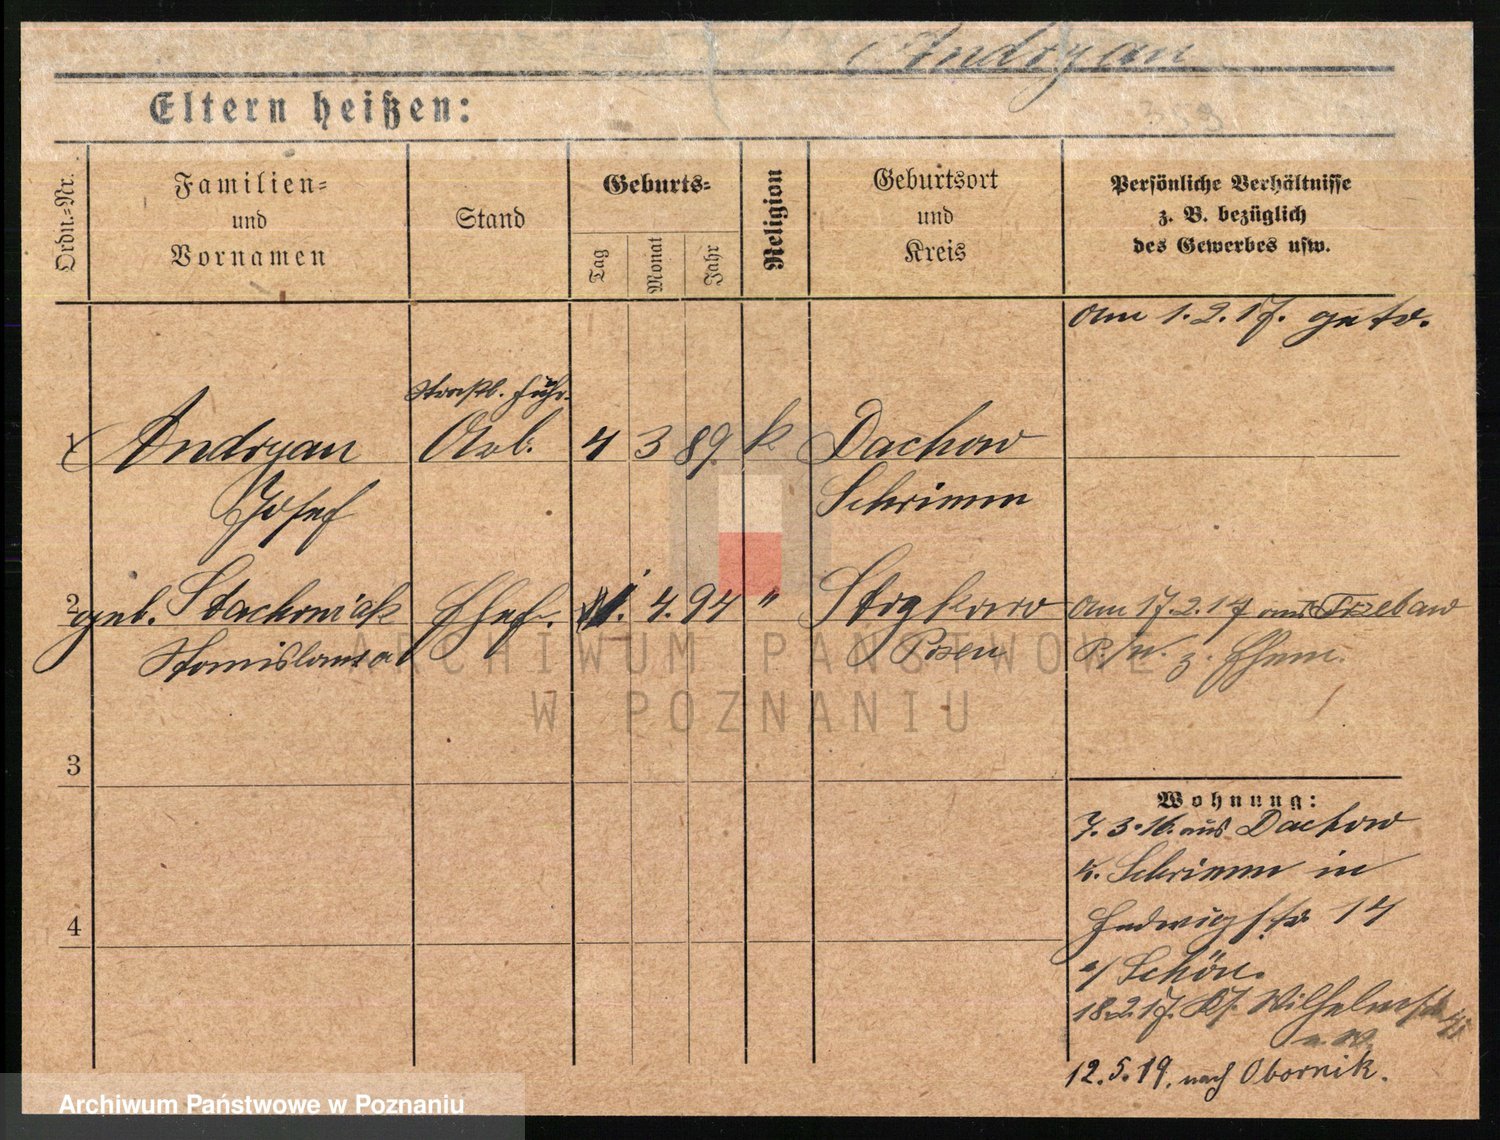 Andryan
Eltern heißen:
353
Ordn.-Nr.
Familien-
und
Vornamen
Stand
Geburts-
Tag
Monat
Jahr
Religion
Geburtsort
und
Kreis
Persönliche Verhältnisse
z. B. bezüglich
des Gewerbes usw.
am 1.2.17. getr.
1 Andryan Arb. 4 3 89 k Dachow
Josef Schrimm
2 geb. Stachowiak Ehefr. 1. 4. 94 " Strykowo am 17.2.17 aus Trzebaw
Stanislawa Posen P/W. z. Ehem.
3
Wohnung:
7.3.16. aus Dachow
K. Schrimm in
Hedwigstr 14
b/ Schön.
18.2.17. Kl. Wilhelmstr
a. W.
12.5.19. nach Obornik.
4
ARCHIWUM PAŃSTWOWE
W POZNANIU
Archiwum Państwowe w Poznaniu